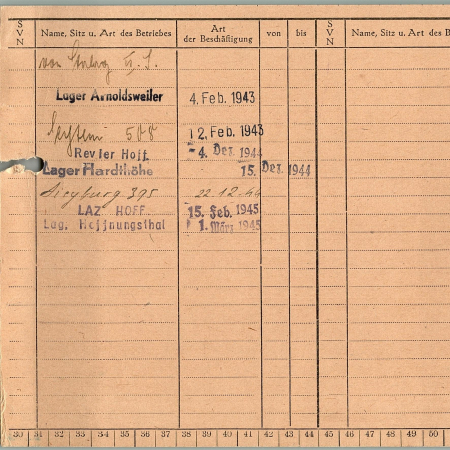 S V N Name, Sitz u. Art des Betriebes Art der Beschäftigung von bis S V N Name, Sitz u. Art des B
von Stalag VI. J.
Lager Arnoldsweiler 4. Feb. 1943
12. Feb. 1943
Revier Hoff. -4. Dez. 1944
Lager Hardthöhe 15. Dez. 1944
Siegburg 395 22.12.44
LAZ HOFF 15. Feb. 1945
Lag. Hoffnungsthal 1. März 1945
30 31 32 33 34 35 36 37 38 39 40 41 42 43 44 45 46 47 48 49 50